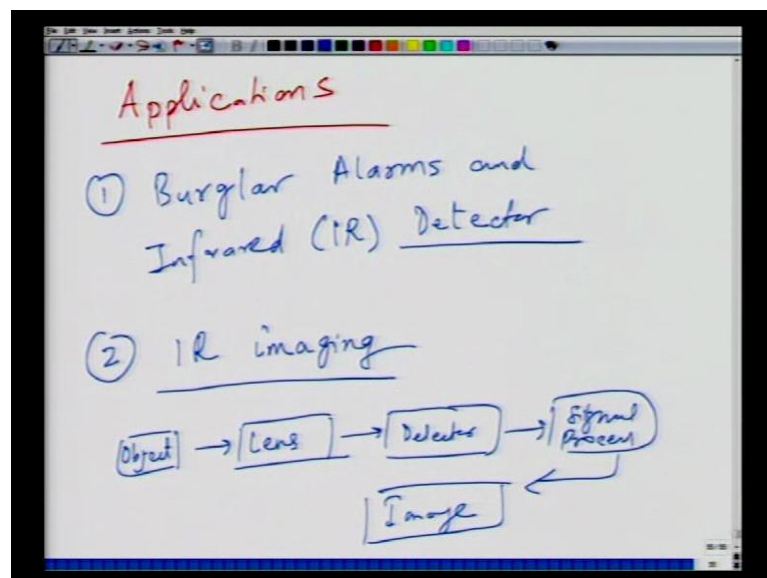 File Edit View Insert Actions Tools Help
Applications
① Burglar Alarms and
Infrared (IR) Detector
② IR imaging
Object → Lens → Detector → Signal
Process
Image